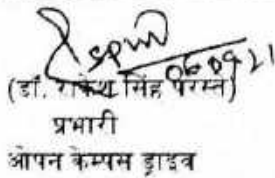 06.09.21
(डॉ. राकेश सिंह परस्ते)
प्रभारी
ओपन केम्पस ड्राइव